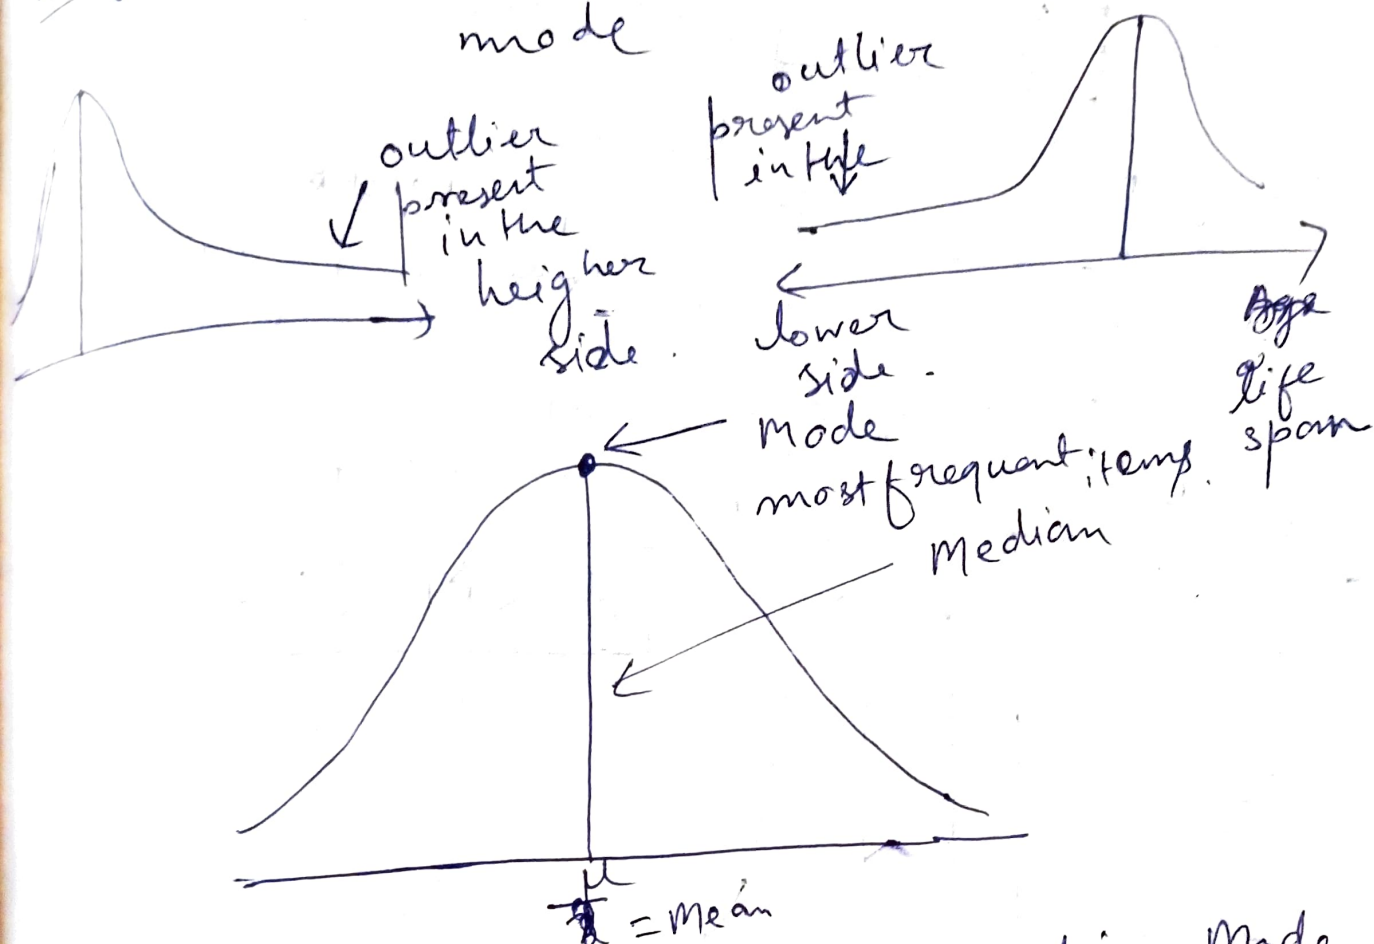 mode
outlier
present
in the
heigher
side.
outlier
present
in the
lower
side.
life
span
Mode
most frequant items.
Median
μ
= Mean
Mode